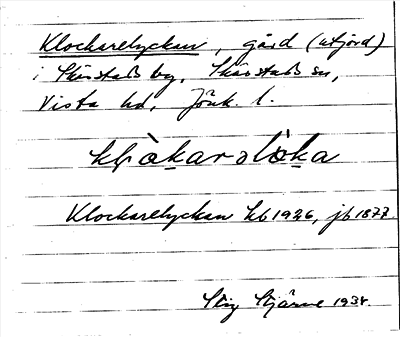 Klockarelyckan, gård (utjord)
i Skärstads by, Skärstads sn,
Vista hd, Jönk. l.
Klockarelyckan kb 1926, jb 1877.
Stig Stjärne 1934.